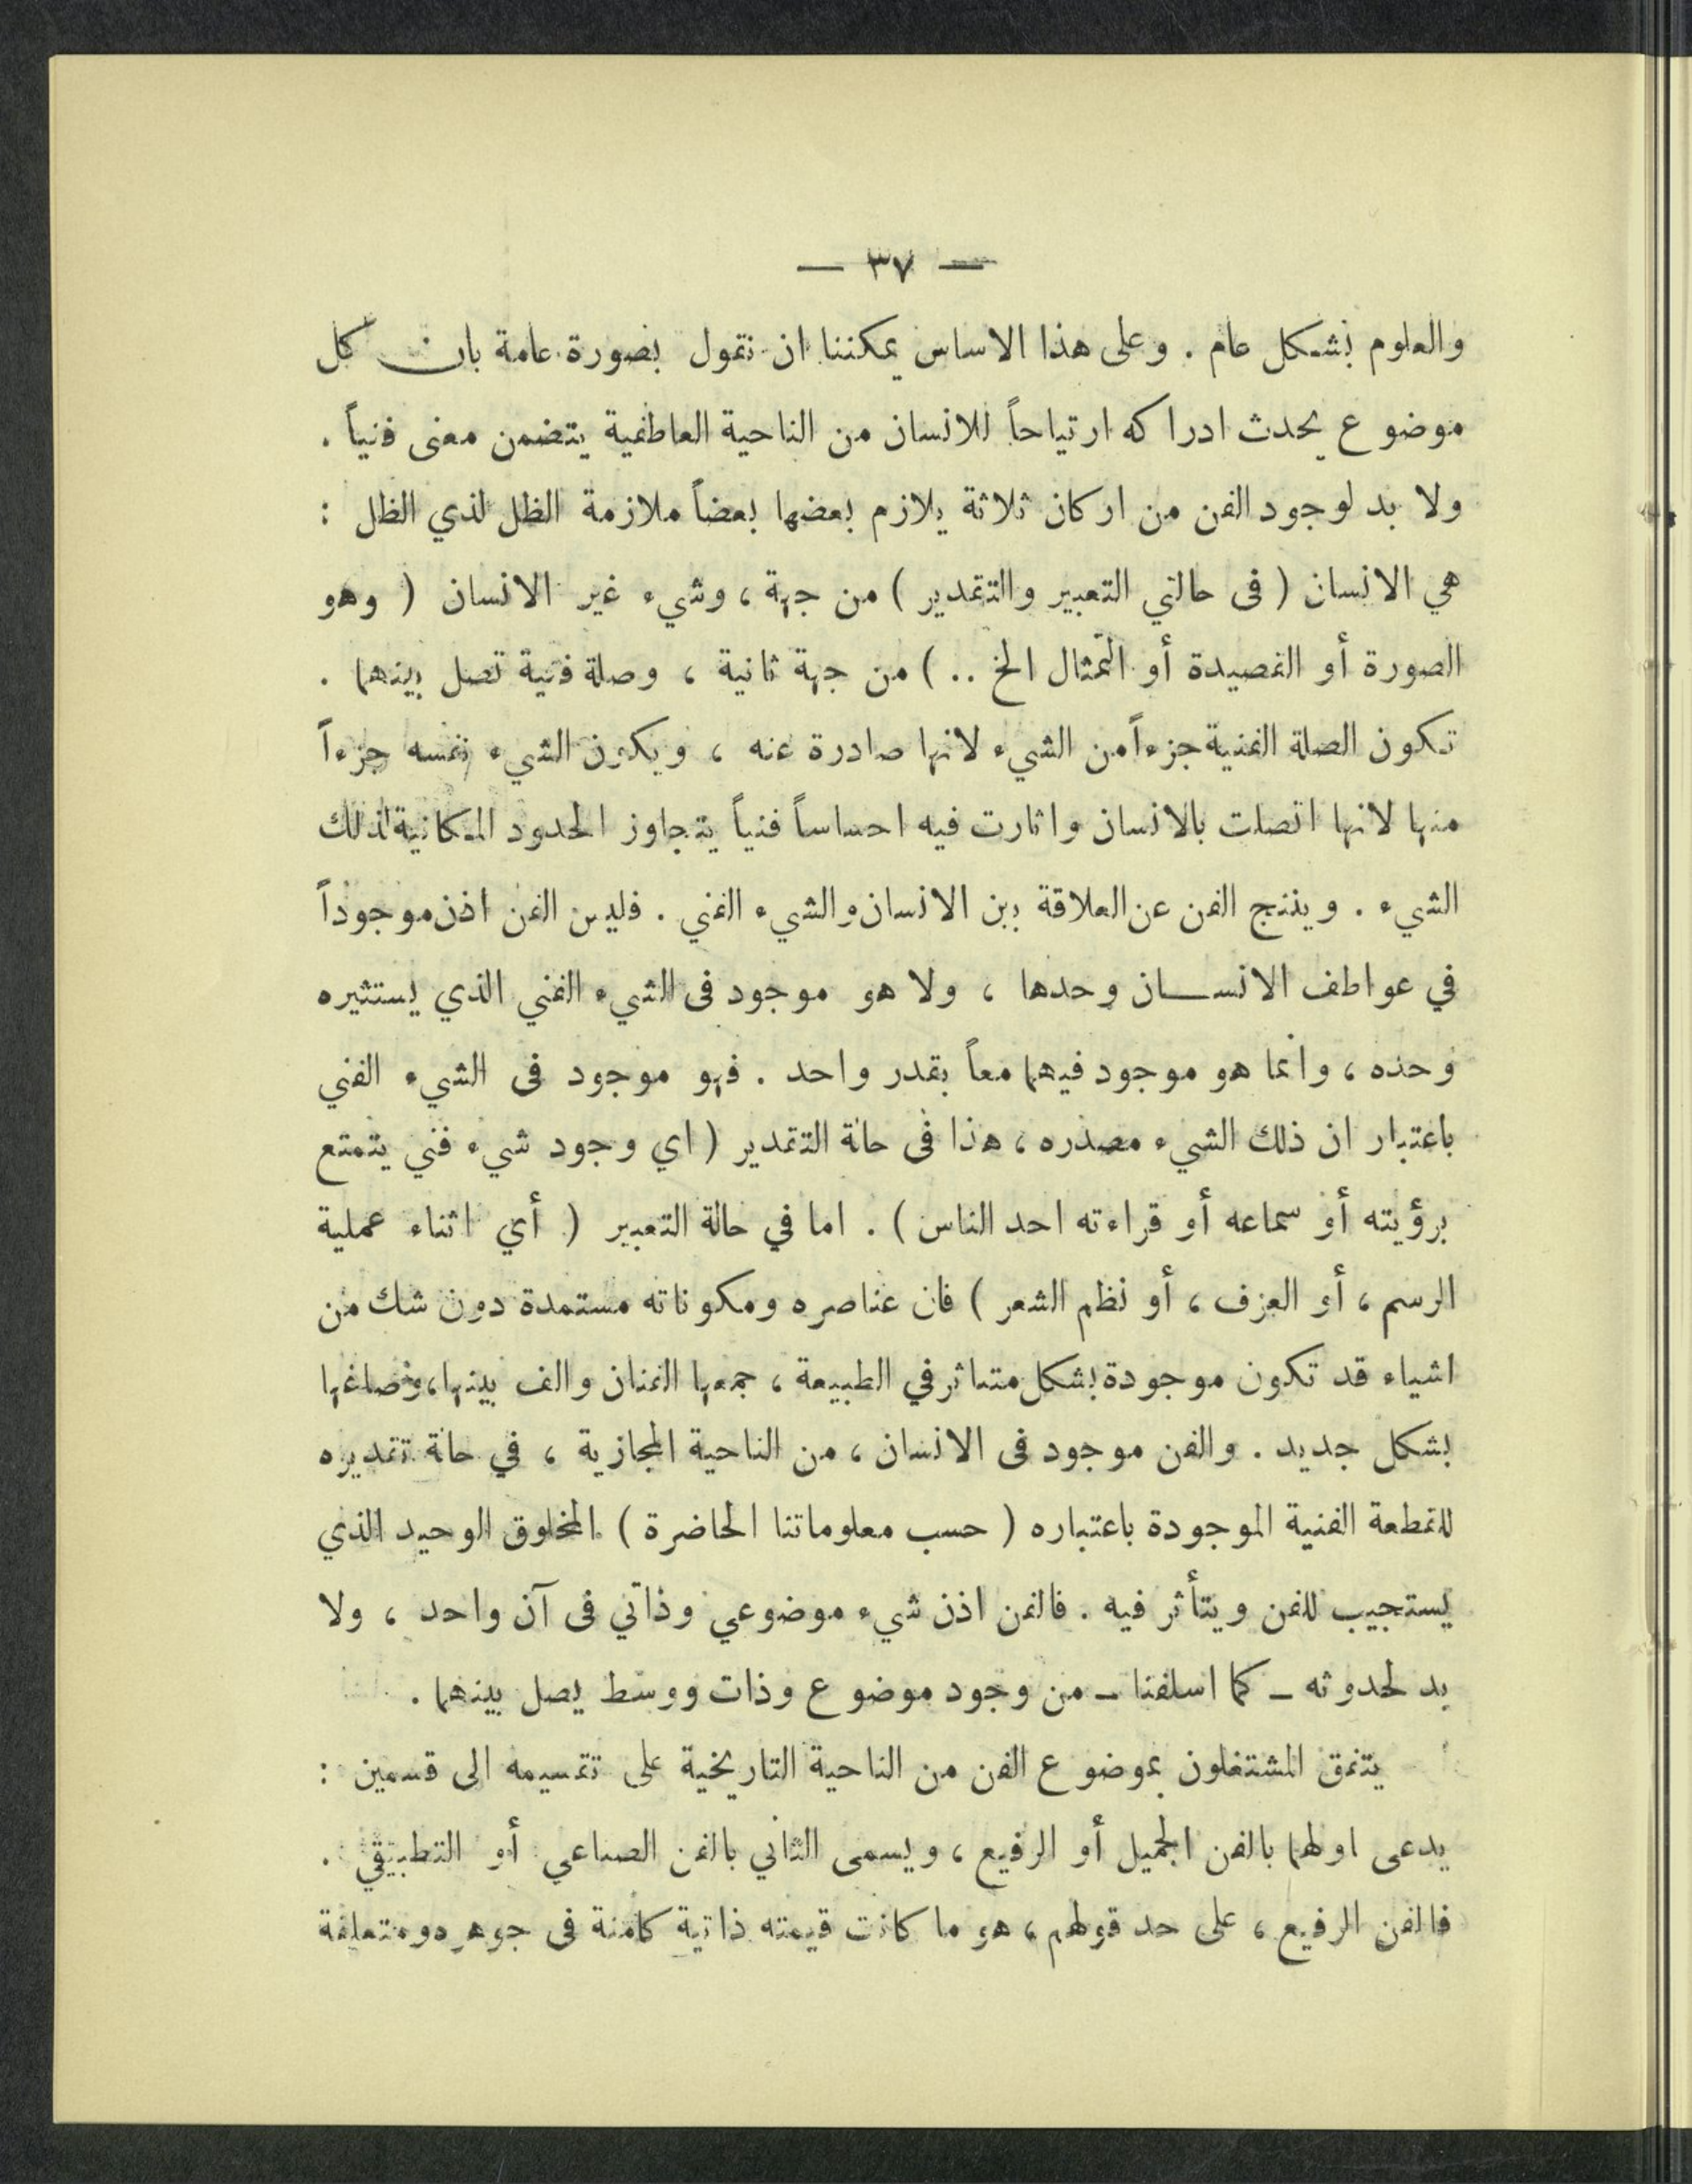 — ٣٧ —
والعلوم بشكل عام . وعلى هذا الاساس يمكننا ان نقول بصورة عامة بان كل
موضوع يحدث ادراكه ارتياحاً للانسان من الناحية العاطفية يتضمن معنى فنياً .
ولا بد لوجود الفن من اركان ثلاثة يلازم بعضها بعضاً ملازمة الظل لذي الظل :
هي الانسان ( في حالتي التعبير والتقدير ) من جهة ، وشيء غير الانسان ( وهو
الصورة أو القصيدة أو التمثال الخ .. ) من جهة ثانية ، وصلة فنية تصل بينهما .
تكون الصلة الفنية جزءاً من الشيء لانها صادرة عنه ، ويكون الشيء نفسه جزءاً
منها لانها اتصلت بالانسان واثارت فيه احساساً فنياً يتجاوز الحدود المكانية لذلك
الشيء . وينتج الفن عن العلاقة بين الانسان والشيء الفني . فليس الفن اذن موجوداً
في عواطف الانســان وحدها ، ولا هو موجود في الشيء الفني الذي يستثيره
وحده ، وانما هو موجود فيهما معاً بقدر واحد . فهو موجود في الشيء الفني
باعتبار ان ذلك الشيء مصدره ، هذا في حالة التقدير ( اي وجود شيء فني يتمتع
برؤيته أو سماعه أو قراءته احد الناس ) . اما في حالة التعبير ( أي اثناء عملية
الرسم ، أو العزف ، أو نظم الشعر ) فان عناصره ومكوناته مستمدة دون شك من
اشياء قد تكون موجودة بشكل متناثر في الطبيعة ، جمعها الفنان والف بينها ، وصاغها
بشكل جديد . والفن موجود في الانسان ، من الناحية المجازية ، في حالة تقديره
للقطعة الفنية الموجودة باعتباره ( حسب معلوماتنا الحاضرة ) المخلوق الوحيد الذي
يستجيب للفن ويتأثر فيه . فالفن اذن شيء موضوعي وذاتي في آن واحد ، ولا
بد لحدوثه – كما اسلفنا – من وجود موضوع وذات ووسط يصل بينهما .
يتفق المشتغلون بموضوع الفن من الناحية التاريخية على تقسيمه الى قسمين :
يدعى اولهما بالفن الجميل أو الرفيع ، ويسمى الثاني بالفن الصناعي أو التطبيقي .
فالفن الرفيع ، على حد قولهم ، هو ما كانت قيمته ذاتية كامنة في جوهره ومتعلقة